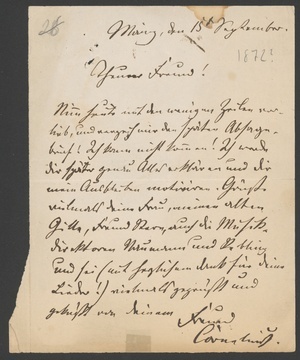 28
Mainz, den 15t September.
1872?
Theurer Freund!
Nimm heute mit den wenigen Zeilen vor-
lieb, und verzeih mir den späten Absage-
brief! Ich kann nicht kommen! Ich werde
dir später genau Alles erklären und dir
mein Ausbleiben motiviren. Grüße
vielmals deine Frau, meinen alten
Freund Stern, auch die Musik-
direktoren Naumann und
und sei (mit herzlichem Dank für deine
Lieder!) vielmals gegrüßt und
geküßt von deinem
Freund
Cornelius.